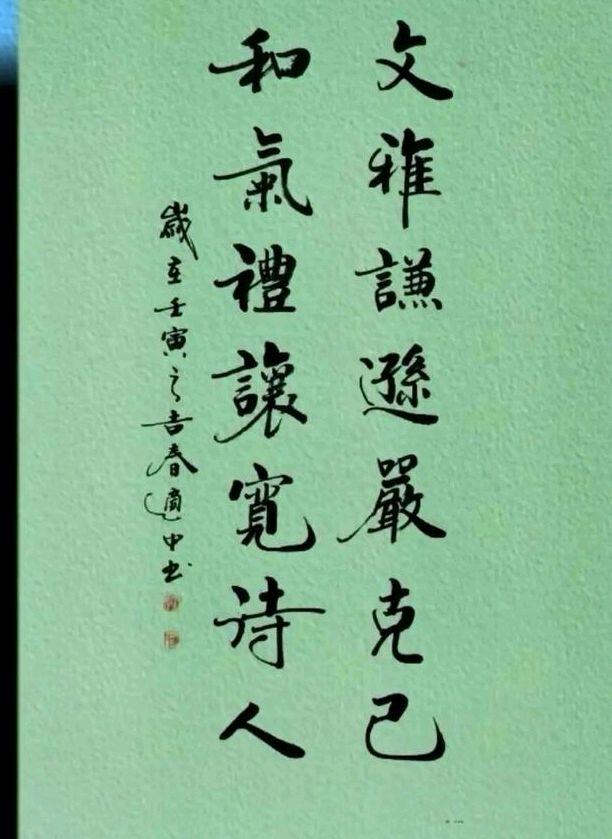 文雅謙遜嚴克己
和氣禮讓寬待人
歲在壬寅之吉春適中书